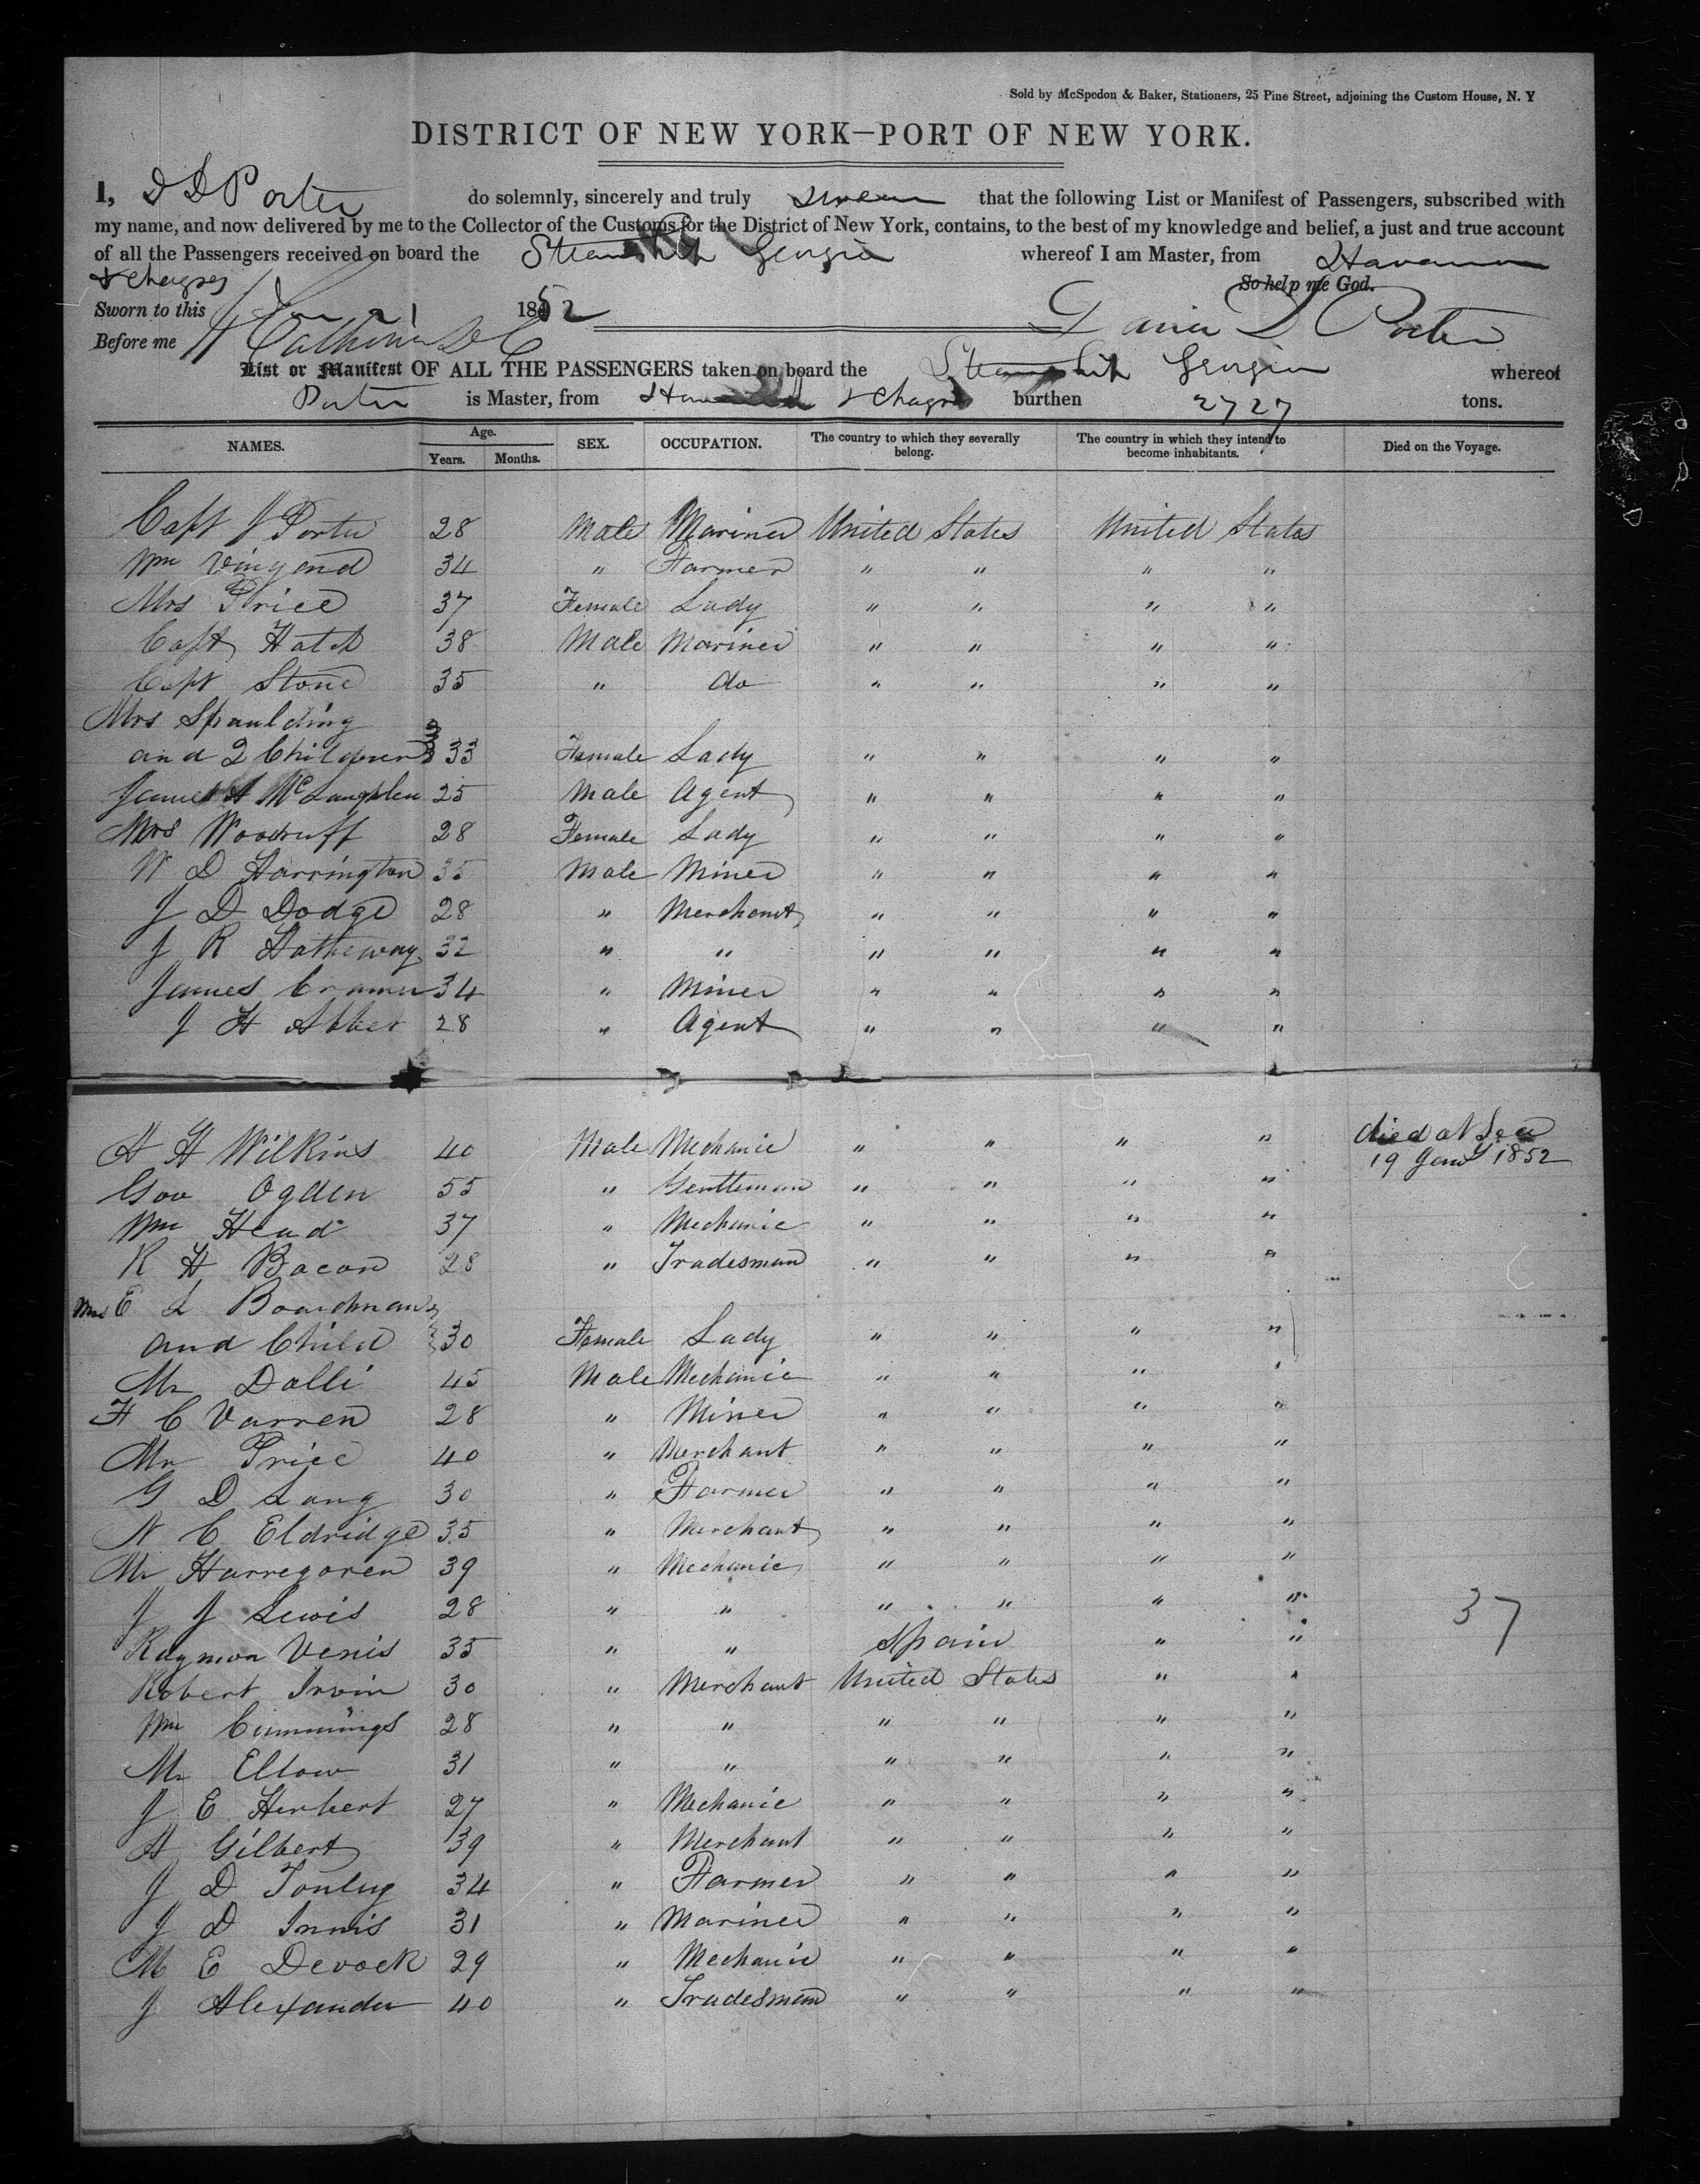 Sold by McSpedon & Baker, Stationers, 25 Pine Street, adjoining the Custom House, N. Y
DISTRICT OF NEW YORK—PORT OF NEW YORK.
I, D D Porter do solemnly, sincerely and truly swear that the following List or Manifest of Passengers, subscribed with
my name, and now delivered by me to the Collector of the Customs for the District of New York, contains, to the best of my knowledge and belief, a just and true account
of all the Passengers received on board the Steamship Georgia whereof I am Master, from Havana
& Chagres So help me God.
Sworn to this Jan 21 1852 David D Porter
Before me
List or Manifest OF ALL THE PASSENGERS taken on board the Steamship Georgia whereof
Porter is Master, from Havana & Chagres burthen 2727 tons.
NAMES. Age. Years. Months. SEX. OCCUPATION. The country to which they severally belong. The country in which they intend to become inhabitants. Died on the Voyage.
Capt J Porter 28 Male Mariner United States United States
Wm Vingard 34 " Farmer " " " "
Mrs Price 37 Female Lady " " " "
Capt Hatch 38 Male Mariner " " " "
Capt Stone 35 " do " " " "
Mrs Spaulding
and 2 Children 33 Female Lady " " " "
James A McLaughlen 25 Male Agent " " " "
Mrs Woodruff 28 Female Lady " " " "
W D Harrington 35 Male Miner " " " "
J D Dodge 28 " Merchant " " " "
J R Hatheway 32 " " " " " "
James Cramer 34 " Miner " " " "
J H Abber 28 " Agent " " " "
H H Wilkins 40 Male Mechanic " " " " died at Sea
19 Jany 1852
Gov Ogden 55 " Gentleman " " " "
Wm Head 37 " Mechanic " " " "
R H Bacon 28 " Tradesman " " " "
Mrs E L Boardman
and Child 30 Female Lady " " " "
Mr Dalli 45 Male Mechanic " " " "
H C Varren 28 " Miner " " " "
Mr Price 40 " Merchant " " " "
G D Lang 30 " Farmer " " " "
N C Eldridge 35 " Merchant " " " "
Mr Harregoren 39 " Mechanic " " " "
J J Lewis 28 " " " " " " 37
Raymon Venis 35 " " Spain " "
Robert Irvin 30 " Merchant United States " "
Wm Cummings 28 " " " " " "
Mr Ellow 31 " " " " " "
J E Herbert 27 " Mechanic " " " "
H Gilbert 39 " Merchant " " " "
J D 34 " Farmer " " " "
J D Innis 31 " Mariner " " " "
M E Devock 29 " Mechanic " " " "
J Alexander 40 " Tradesman " " " "